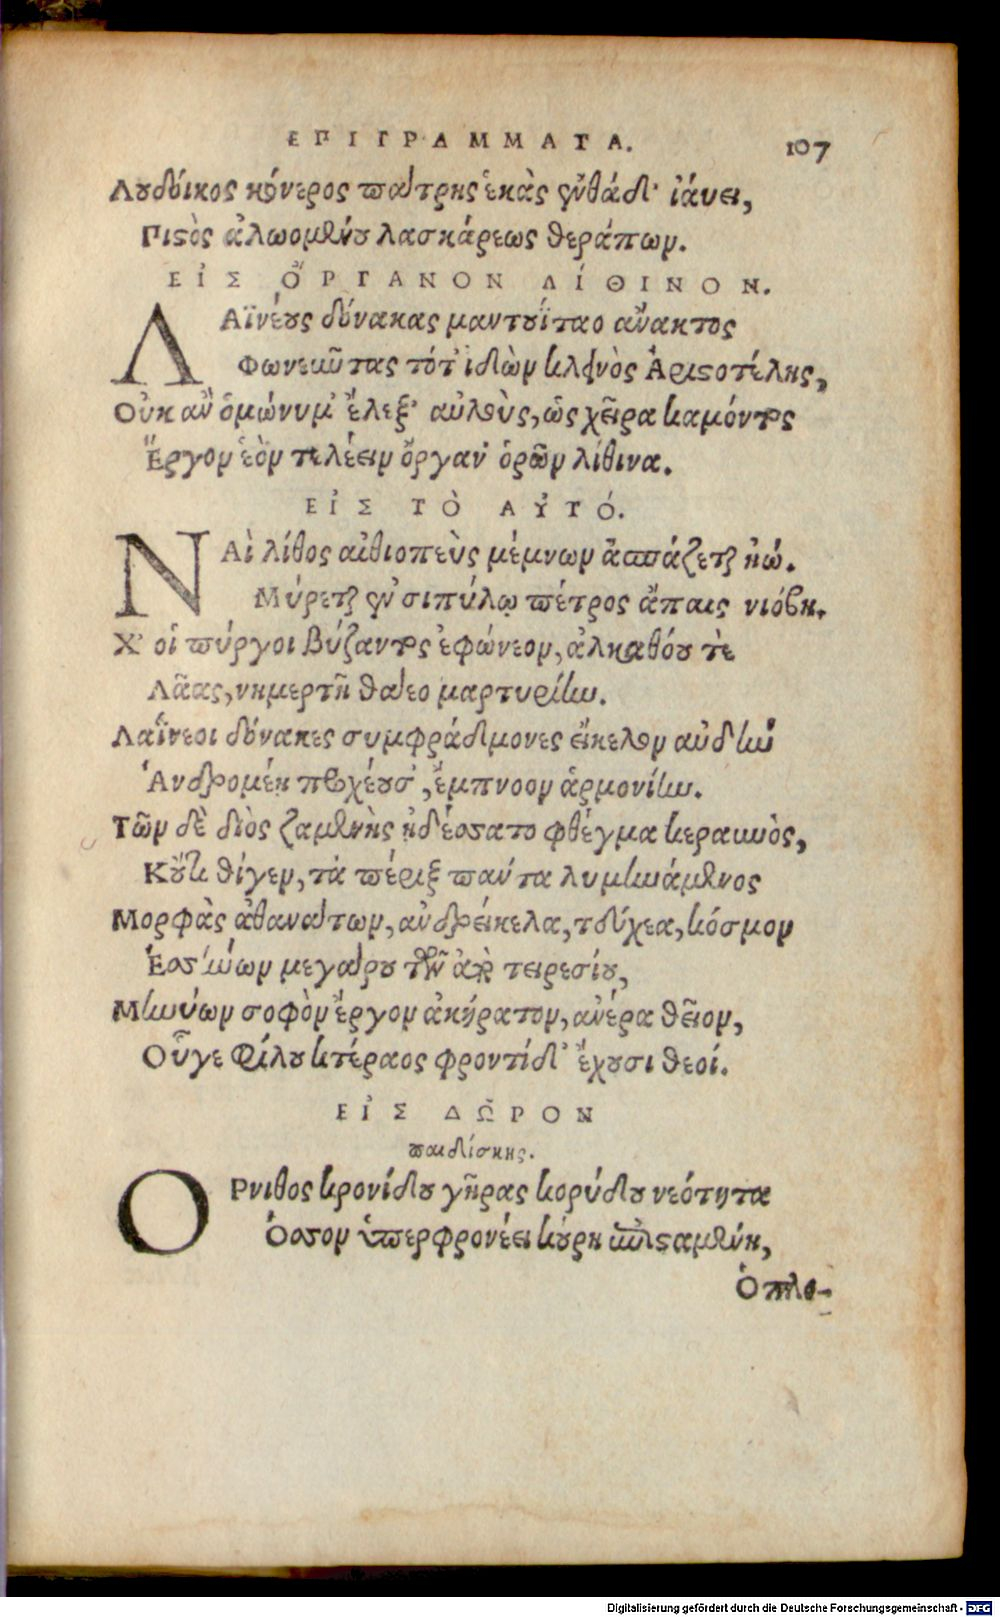 ΕΠΙΓΡΑΜΜΑΤΑ. 107
Λουδόικος κόνερος πάτρης ἑκὰς ἐνθάδ' ἰάυει,
Πιστὸς ἀλωομένου λασκάρεως θεράπων.
ΕἰΣ ὌΡΓΑΝΟΝ ΛίΘΙΝΟΝ.
ΛΑϊνέους δόνακας μαντουΐταο ἄνακτος
Φωνεῦντας τότ' ἰδὼν κλεινὸς Ἀριστοτέλης,
Οὐκ ἂν ὁμώνυμ' ἔλεξ' αὐλοὺς, ὡς χεῖρα καμόντος
Ἔργον ἑὸν τελέειν ὄργαν' ὁρῶν λίθινα.
ΕἰΣ ΤῸ ΑΥ̓ΤΌ.
ΝΑὶ λίθος αἰθιοπεὺς μέμνων ἀσπάζεται ἠώ.
Μύρεται ἐν σιπύλῳ πέτρος ἄπαις νιόβη.
Χ' οἱ πύργοι βύζαντος ἐφώνεον, ἀλκαθόου τὲ
Λᾶας, νημερτῆ θάεο μαρτυρίην.
Λαΐνεοι δόνακες συμφράδμονες εἴκελον αὐδὴν
Ἀνδρομέῃ προχέουσ', ἔμπνοον ἁρμονίην.
Τῶν δὲ διὸς ζαμενὴς ᾐδέσσατο φθέγμα κεραυνὸς,
Κοὔκ θίγεν, τὰ πέριξ πάντα λυμηνάμενος
Μορφὰς ἀθανάτων, ἀνδρείκελα, τεύχεα, κόσμον
Ἑσσήνων μεγάρου τῶν ἀπὸ τειρεσίου,
Μηνύων σοφὸν ἔργον ἀκήρατον, ἀνέρα θεῖον,
Οὗγε φίλου κτέραος φροντίδ' ἔχουσι θεοί.
ΕἰΣ ΔῶΡΟΝ
παιδίσκης.
ΟΡνιθος κρονίδου γῆρας κορύδου νεότητα
Ὅσσον ὑπερφρονέει κούρη ἐπισταμένη,
Ὁπλο-
Digitalisierung gefördert durch die Deutsche Forschungsgemeinschaft - DFG